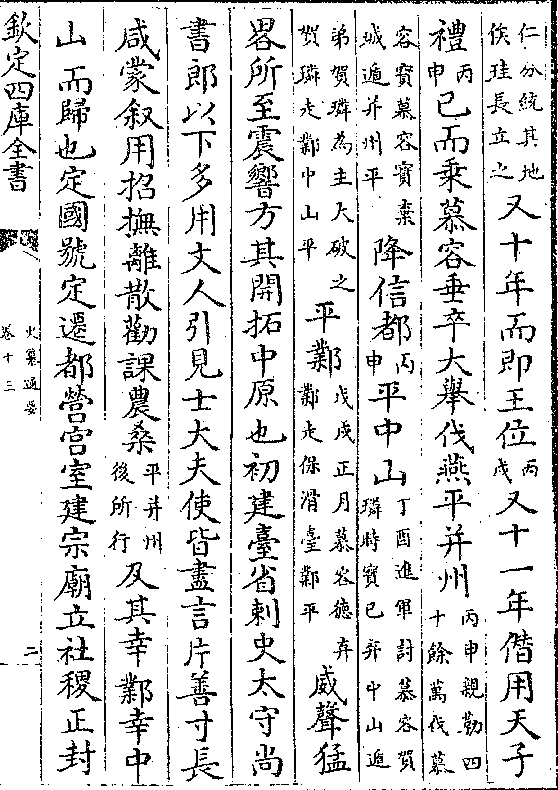 仁分統其地侯珪長立之又十年而即王位丙戌又十一年僭用天子
禮丙申已而乗慕容垂卒大舉伐燕平并州丙申親勒四十餘萬伐慕
容寶慕容寶棄城遁并州平降信都丙申平中山丁酉進軍討慕容賀璘時寶已弃中山遁
弟賀璘為主大破之賀璘走鄴中山平平鄴戊戌正月慕容徳弃鄴走保滑臺鄴平威聲猛
畧所至震響方其開拓中原也初建臺省刺史太守尚
書郎以下多用文人引見士大夫使皆盡言片善寸長
咸蒙叙用招撫離散勸課農桑平并州後所行及其幸鄴幸中
山而歸也定國號定遷都營宫室建宗廟立社稷正封
欽定四庫全書
史纂通要
卷十三
二